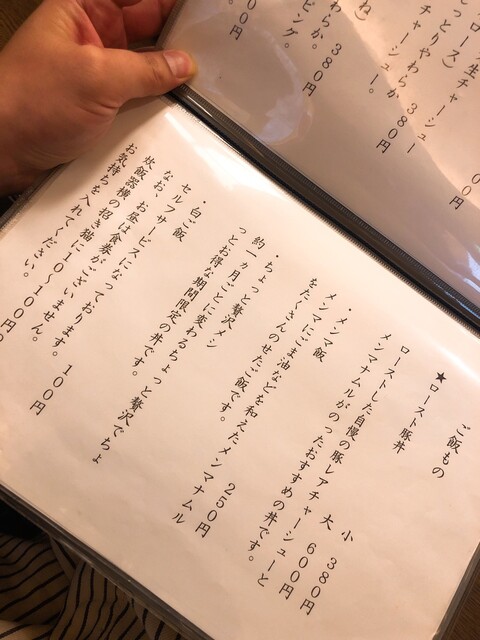 ロース生チャーシュー
とり
ロース)
っとりやわらか
チャーシュー。
380円
ね)
わらか。
380円
ピング。
00円
ご飯もの
★ロースト豚丼
小 380円
大 600円
ローストした自慢の豚レアチャーシューと
メンマナムルがのったおすすめの丼です。
・メンマ飯
250円
メンマにごま油などを和えたメンマナムル
をたくさんのせたご飯です。
・ちょっと贅沢メシ
約一ヵ月ごとに変わるちょっと贅沢でちょ
っとお得な期間限定の丼です。
・白ご飯
100円
セルフサービスになっております。
なお、お昼は食券がございません。
炊飯器横の招き猫に10〜100円の
お気持ちを入れてください。